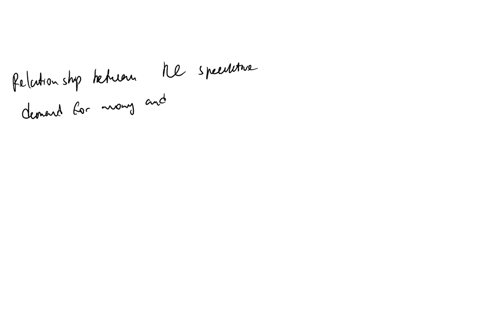 Relationship between the speculative
demand for money and